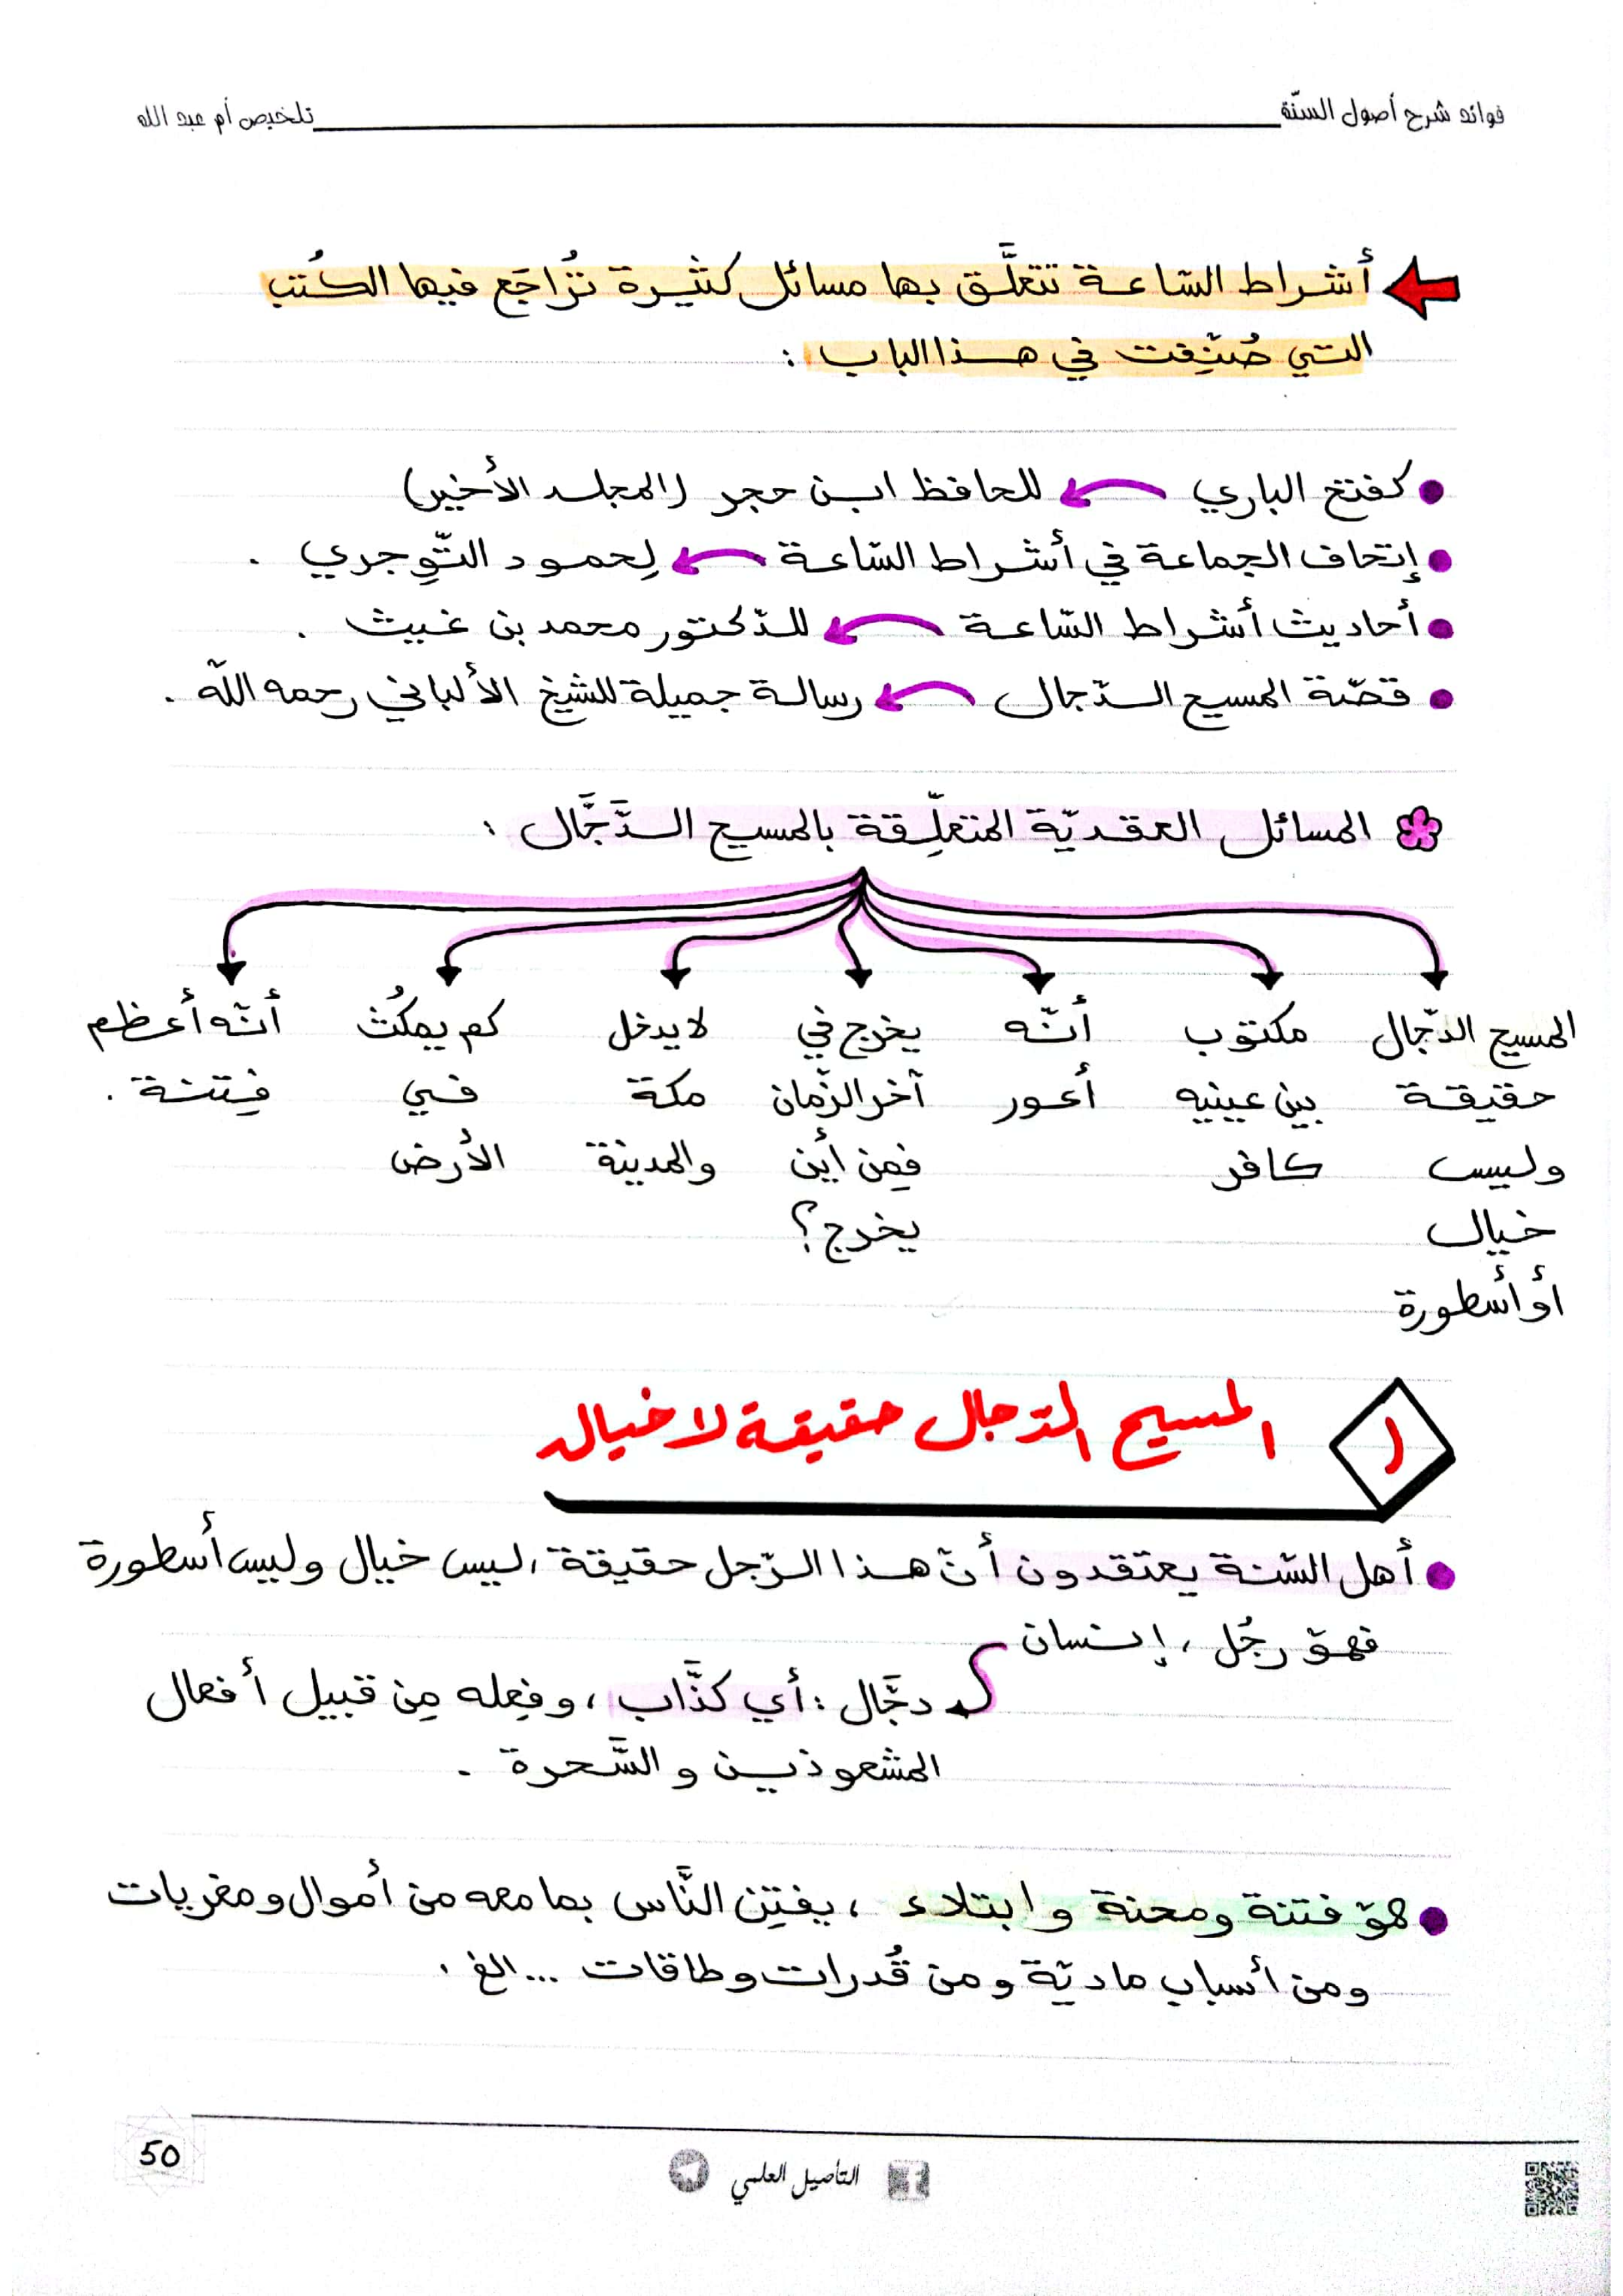 فوائد شرح أصول السنّة
تلخيص أم عبد الله
أشراط السّاعة تتعلَّق بها مسائل كثيرة تُراجَع فيها الكُتب
التي صُنّفت في هذا الباب :
كفتح الباري للحافظ ابن حجر (المجلد الأخير)
إتحاف الجماعة في أشراط السّاعة لِحمود التّوِجري .
أحاديث أشراط السّاعة للدّكتور محمد بن غيث .
قصّة المسيح الدّجال رسالة جميلة للشيخ الألباني رحمه اللّه .
المسائل العقديّة المتعلِّقة بالمسيح الدَّجَّال :
المسيح الدّجال
حقيقة
وليس
خيال
أو أسطورة
مكتوب
بين عينيه
كافر
أنّه
أعور
يخرج في
آخر الزّمان
فمِن أين
يخرج؟
لا يدخل
مكة
والمدينة
كم يمكُث
في
الأرض
أنّه أعظم
فِتنة .
١
المسيح الدّجال حقيقة لا خيال
أهل السّنة يعتقدون أنّ هذا الرّجل حقيقة ، ليس خيال وليس أسطورة
فهوّ رجُل ، إنسان
دجَّال : أي كذَّاب ، وفِعله مِن قبيل أفعال
المشعوذين والسَّحرة .
هوّ فتنة ومحنة وابتلاء ، يفتِن النَّاس بما معه من أموال ومغريات
ومن أسباب ماديّة ومن قُدرات وطاقات ... الخ .
التأصيل العلمي
50